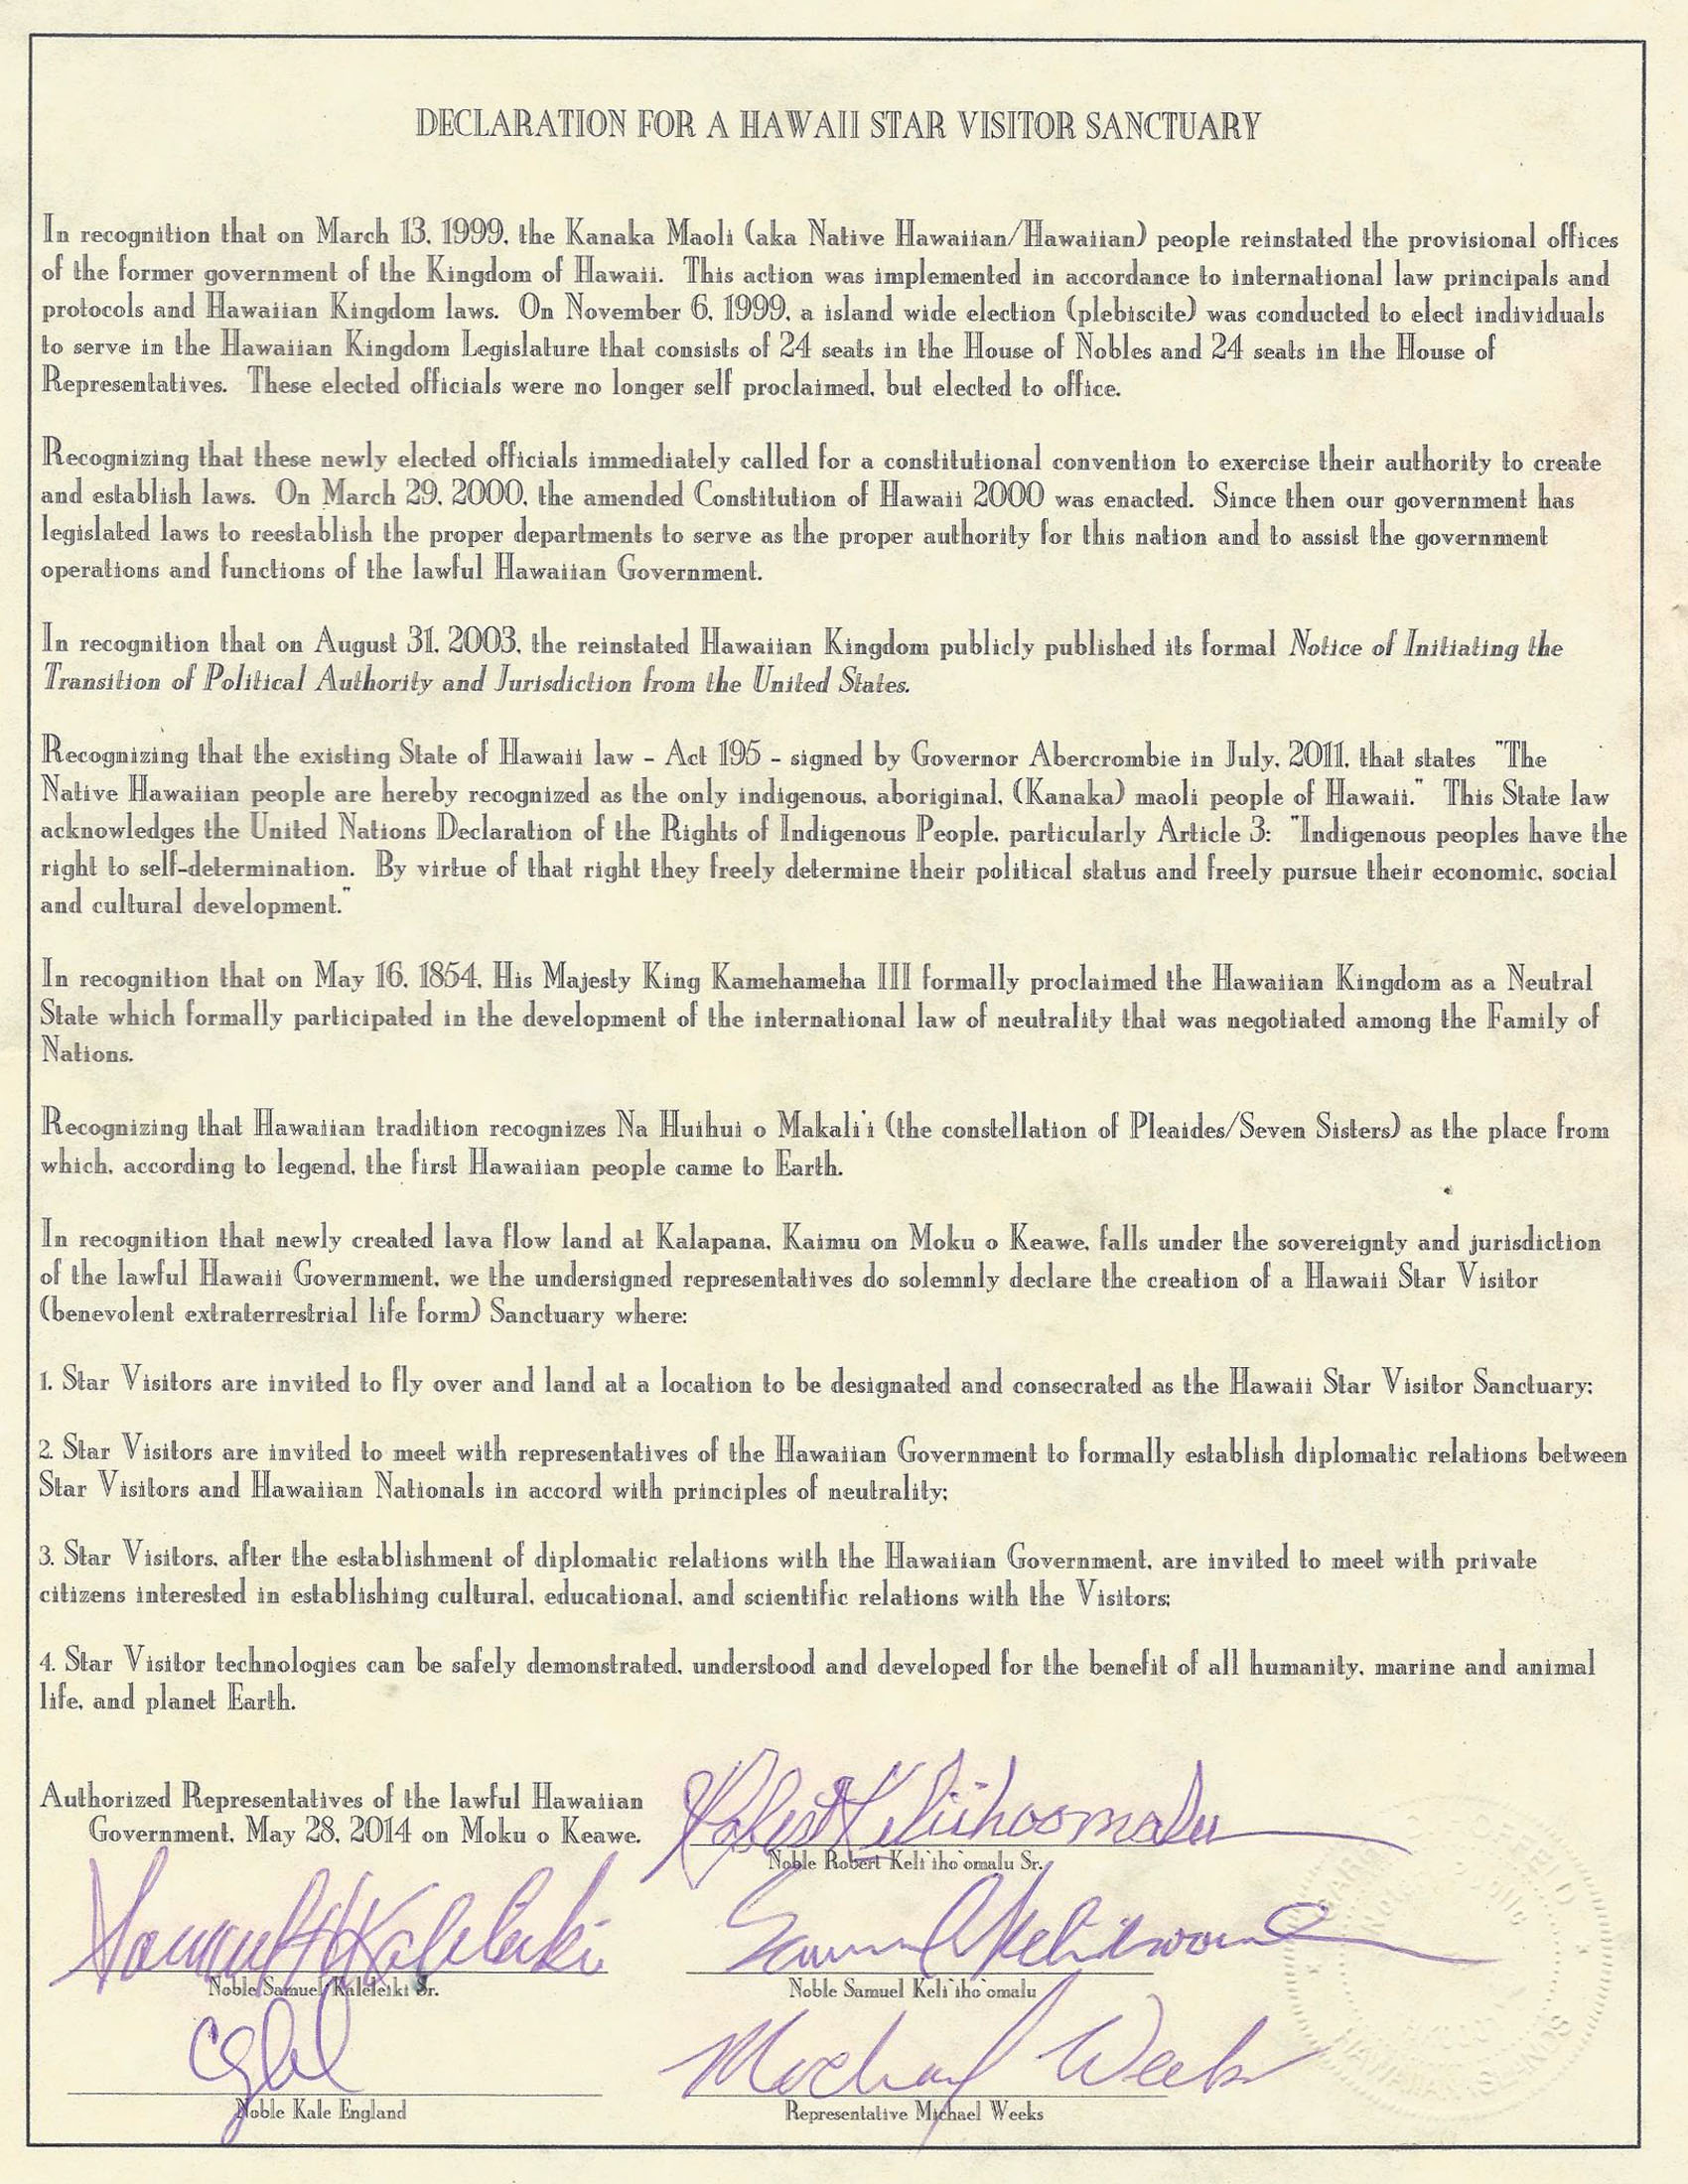 DECLARATION FOR A HAWAII STAR VISITOR SANCTUARY
In recognition that on March 13, 1999, the Kanaka Maoli (aka Native Hawaiian/Hawaiian) people reinstated the provisional offices
of the former government of the Kingdom of Hawaii. This action was implemented in accordance to international law principals and
protocols and Hawaiian Kingdom laws. On November 6, 1999, a island wide election (plebiscite) was conducted to elect individuals
to serve in the Hawaiian Kingdom Legislature that consists of 24 seats in the House of Nobles and 24 seats in the House of
Representatives. These elected officials were no longer self proclaimed, but elected to office.
Recognizing that these newly elected officials immediately called for a constitutional convention to exercise their authority to create
and establish laws. On March 29, 2000, the amended Constitution of Hawaii 2000 was enacted. Since then our government has
legislated laws to reestablish the proper departments to serve as the proper authority for this nation and to assist the government
operations and functions of the lawful Hawaiian Government.
In recognition that on August 31, 2003, the reinstated Hawaiian Kingdom publicly published its formal Notice of Initiating the
Transition of Political Authority and Jurisdiction from the United States.
Recognizing that the existing State of Hawaii law - Act 195 - signed by Governor Abercrombie in July, 2011, that states "The
Native Hawaiian people are hereby recognized as the only indigenous, aboriginal, (Kanaka) maoli people of Hawaii." This State law
acknowledges the United Nations Declaration of the Rights of Indigenous People, particularly Article 3: "Indigenous peoples have the
right to self-determination. By virtue of that right they freely determine their political status and freely pursue their economic, social
and cultural development."
In recognition that on May 16, 1854, His Majesty King Kamehameha III formally proclaimed the Hawaiian Kingdom as a Neutral
State which formally participated in the development of the international law of neutrality that was negotiated among the Family of
Nations.
Recognizing that Hawaiian tradition recognizes Na Huihui o Makali`i (the constellation of Pleaides/Seven Sisters) as the place from
which, according to legend, the first Hawaiian people came to Earth.
In recognition that newly created lava flow land at Kalapana, Kaimu on Moku o Keawe, falls under the sovereignty and jurisdiction
of the lawful Hawaii Government, we the undersigned representatives do solemnly declare the creation of a Hawaii Star Visitor
(benevolent extraterrestrial life form) Sanctuary where:
1. Star Visitors are invited to fly over and land at a location to be designated and consecrated as the Hawaii Star Visitor Sanctuary;
2. Star Visitors are invited to meet with representatives of the Hawaiian Government to formally establish diplomatic relations between
Star Visitors and Hawaiian Nationals in accord with principles of neutrality;
3. Star Visitors, after the establishment of diplomatic relations with the Hawaiian Government, are invited to meet with private
citizens interested in establishing cultural, educational, and scientific relations with the Visitors;
4. Star Visitor technologies can be safely demonstrated, understood and developed for the benefit of all humanity, marine and animal
life, and planet Earth.
Authorized Representatives of the lawful Hawaiian
Government, May 28, 2014 on Moku o Keawe.
Noble Robert Keli`iho`omalu Sr.
Noble Samuel Kaleleiki Sr.
Noble Samuel Keli`iho`omalu
Noble Kale England
Michael Weeks
Representative Michael Weeks
HAWAIIAN ISLANDS